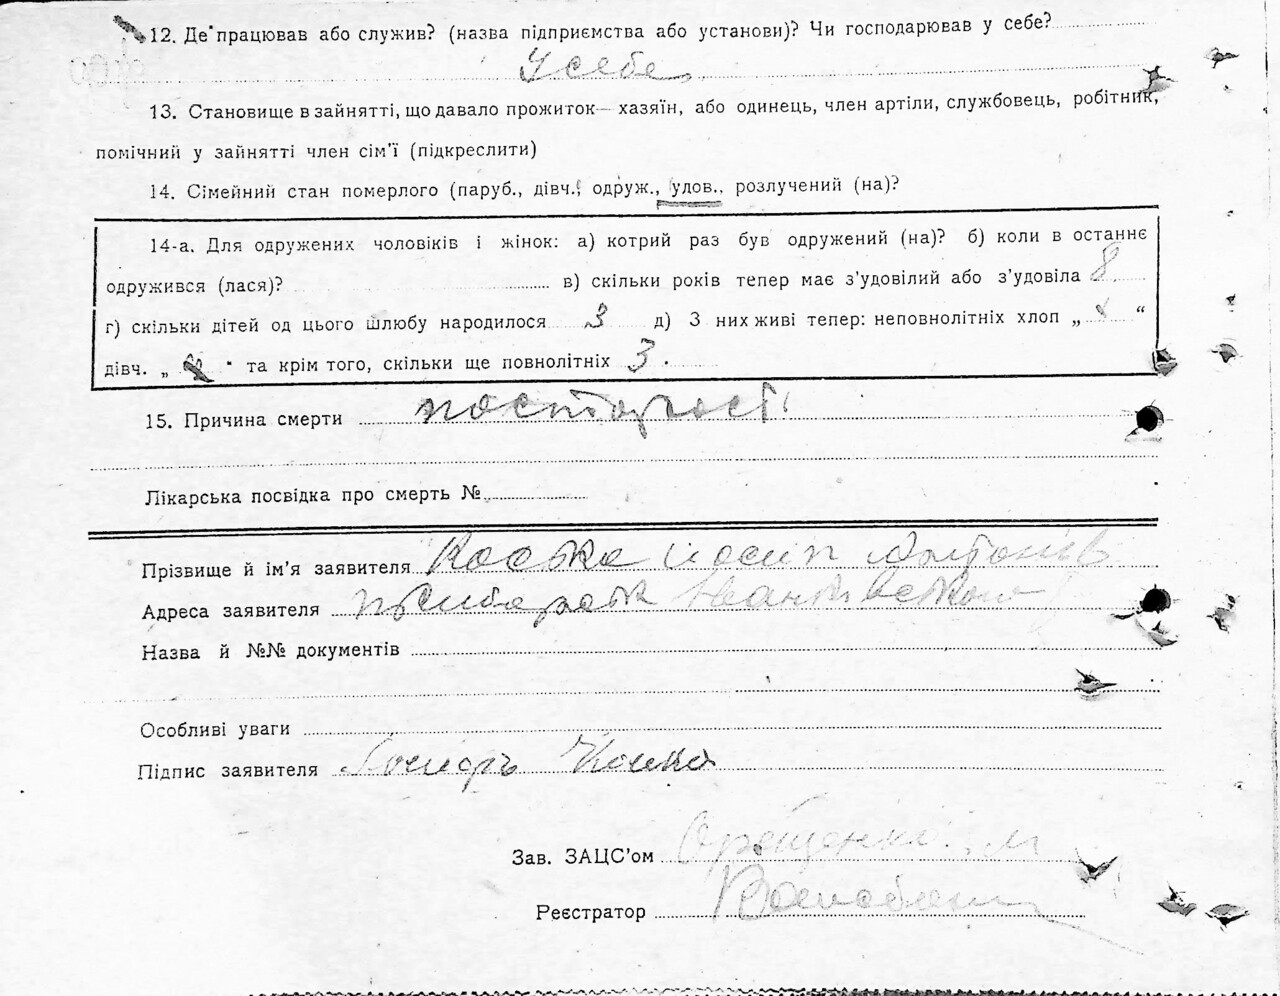 12. Де працював або служив? (назва підприємства або установи)? Чи господарював у себе?
У себе
13. Становище в зайнятті, що давало прожиток— хазяїн, або одинець, член артіли, службовець, робітник,
помічний у зайнятті член сім'ї (підкреслити)
14. Сімейний стан померлого (паруб., дівч., одруж., удов., розлучений (на)?
14-а. Для одружених чоловіків і жінок: а) котрий раз був одружений (на)? б) коли в останнє
одружився (лася)? в) скільки років тепер має з'удовілий або з'удовіла 8
г) скільки дітей од цього шлюбу народилося 3 д) З них живі тепер: неповнолітніх хлоп „ “
дівч. „ “ та крім того, скільки ще повнолітніх 3.
15. Причина смерти по старості
Лікарська посвідка про смерть №
Прізвище й ім'я заявителя Йосип Антонів
Адреса заявителя
Назва й №№ документів
Особливі уваги
Підпис заявителя
Зав. ЗАЦС'ом
Реєстратор